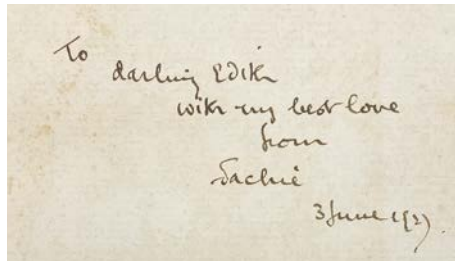 To
darling Edith
with my best love
from
Sachie
3 June 1927.